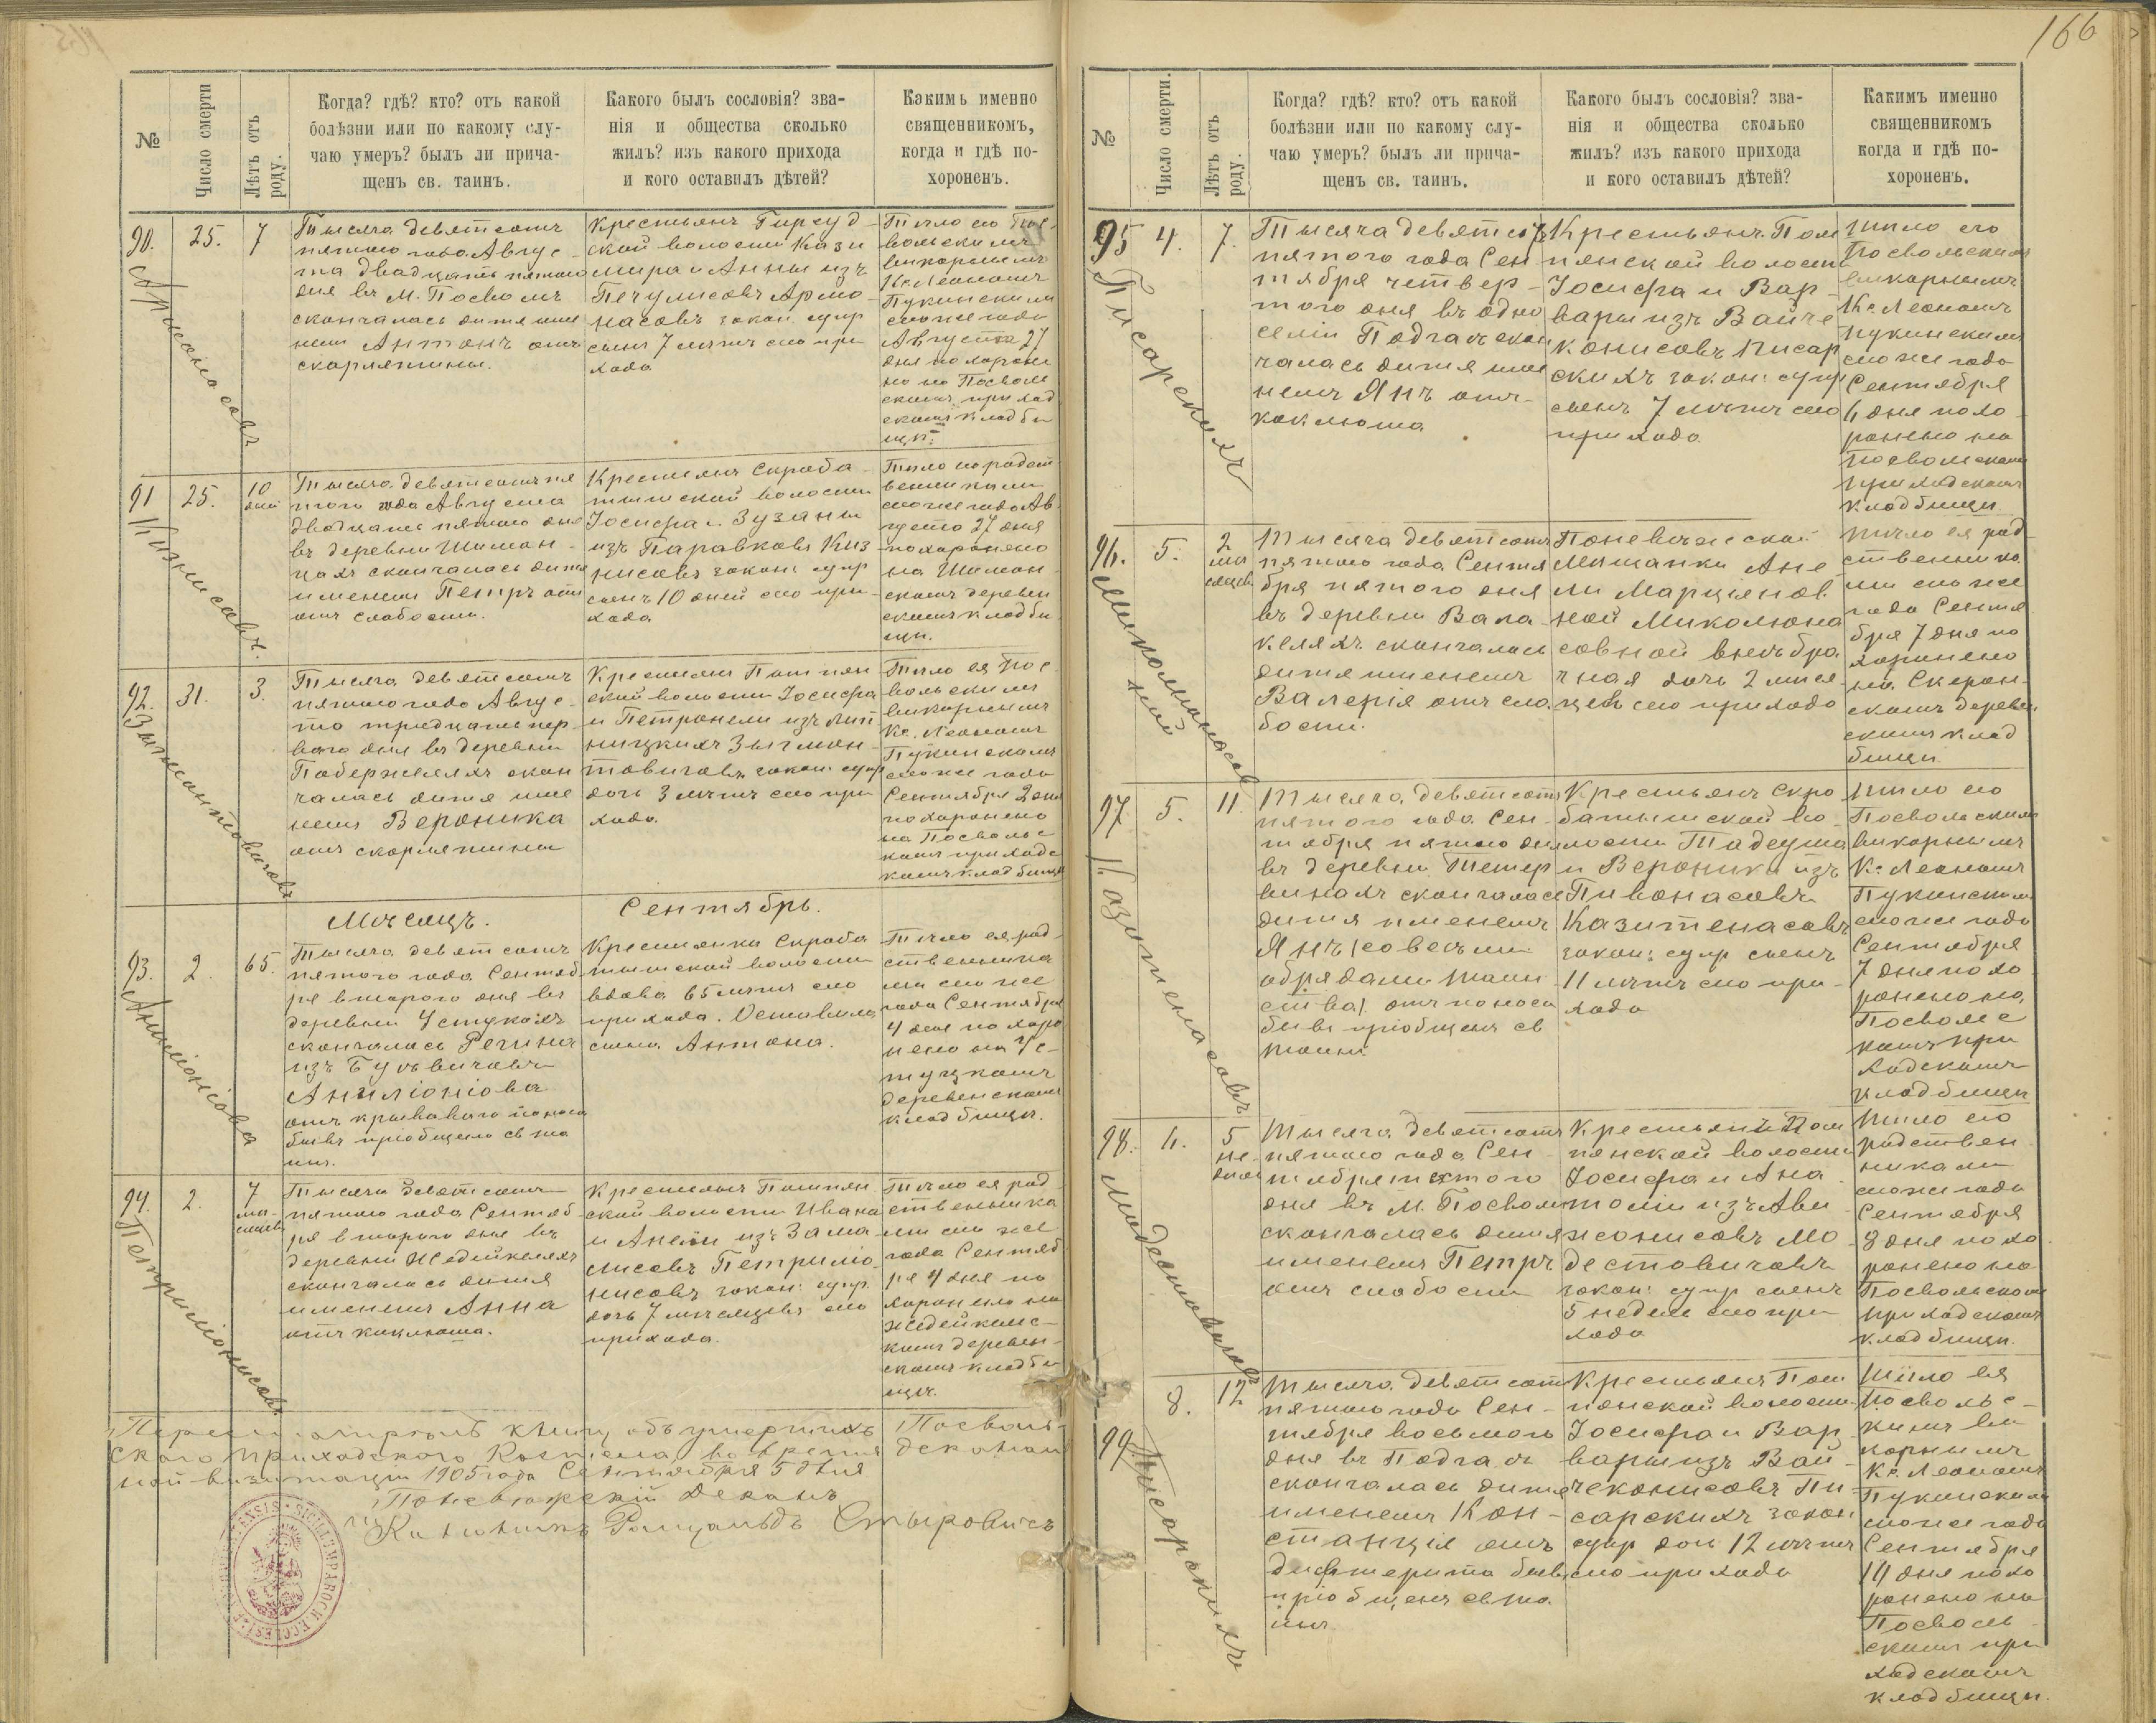 166
№
Число смерти
Лѣтъ отъ роду.
Когда? гдѣ? кто? отъ какой
болѣзни или по какому слу-
чаю умеръ? былъ ли прича-
щенъ св. таинъ.
Какого былъ сословія? зва-
нія и общества сколько
жилъ? изъ какого прихода
и кого оставилъ дѣтей?
Какимъ именно
священникомъ,
когда и гдѣ по-
хороненъ.
90.
25.
7
Тысяча девятсотъ
пятого года Авгус-
та двадцать пятого
дня въ М. Посволѣ
скончалась дитя име
немъ Антонъ отъ
скарлятины.
Крестьянъ Гирсуд-
ской волости Кази
мира и Анны изъ
законн: супр
сынъ 7 лѣтъ сего при
хода
Тѣло его Пос-
вольскимъ
викарнымъ
Кс. Леономъ
Пукинскимъ
сего же года
Августа 27
дня похороне
но на Посволь
скомъ приход
скомъ кладби
щѣ.
91
25.
10
дней
Тысяча девятсотъ пя
того года Августа
двадцать пятого дня
въ деревни Шиман-
цахъ скончалась дитя
именемъ Петръ
отъ слабости.
Крестьянъ Скроба-
тышской волости
Іосифа и Зузаны
изъ Паравковъ Киз
нисовъ закон: супр
сынъ 10 дней сего при-
хода
Тѣло его родст
венниками
сего же года Ав
густа 27 дня
похоронено
на Шиман-
скомъ деревен
скомъ кладби
щѣ.
92.
31.
3.
Зыгмантовичовъ
Тысяча девятсотъ
пятого года Авгус-
та тридцать пер-
вого дня въ деревни
Побержеляхъ скон
чалась дитя име
немъ Вероника
отъ скарлятины
Крестьянъ Помпян
ской волости Іосифа
и Петронели изъ Лип
ницкихъ Зыгман-
товичовъ закон: супр
дочь 3 лѣтъ сего при
хода.
Тѣло ея Пос
вольскимъ
викарнымъ
Кс. Леономъ
Пукинскимъ
сего же года
Сентября 2 дня
похоронено
на Посвольс
комъ приходс
комъ кладбищѣ
Мѣсяцъ. Сентябрь.
93.
2.
65.
Анилiонiова
Тысяча девятсотъ
пятого года Сентяб
ря второго дня въ
деревни Устукахъ
скончалась Регина
изъ Буткевичовъ
Анилiонiова
отъ кроваваго поноса
бывъ пріобщена св та
инъ.
Крестьянка Скроба
тышской волости
вдова 65 лѣтъ сего
прихода. Оставила
сына Антона.
Тѣло ея род-
ственника
ми сего же
года Сентября
4 дня похоро
нено на Ус-
туцкомъ
деревенскомъ
кладбищѣ.
94.
2.
7
мѣ-
сяцевъ
Тысяча девятсотъ
пятого года Сентяб-
ря второго дня въ
деревни Жедейкеляхъ
скончалась дитя
именемъ Анна
отъ коклюша.
Крестьянъ Помпян
ской волости Ивана
и Анели изъ Зама
лисовъ Петриліо-
нисовъ закон: супр.
дочь 7 мѣсяцевъ сего
прихода.
Тѣло ея род-
ственника
ми сего же
года Сентяб
ря 4 дня по
хоронено на
Жедейкельс-
комъ деревен-
скомъ кладби
щѣ.
книгу объ умершихъ Посволь-
скаго Приходскаго Костела во время декаталь
ной визитаціи 1905 года Сентября 5 дня
Поневѣжскій Деканъ
Каноникъ
№
Число смерти.
Лѣтъ отъ роду.
Когда? гдѣ? кто? отъ какой
болѣзни или по какому слу-
чаю умеръ? былъ ли прича-
щенъ св. таинъ.
Какого былъ сословія? зва-
нія и общества сколько
жилъ? изъ какого прихода
и кого оставилъ дѣтей?
Какимъ именно
священникомъ
когда и гдѣ по-
хороненъ.
95
4.
7.
Писарскихъ
Тысяча девятсотъ
пятого года Сен
тября четвер-
того дня въ одно
селіи Подгачъ скон
чалась дитя име
немъ Янъ отъ
коклюша
Крестьянъ Пом
пянской волости
Іосифа и Вар-
вары изъ Вайче
конисовъ Писар
скихъ закон: супр
сынъ 7 лѣтъ сего
прихода
Тѣло его
Посвольскимъ
викарнымъ
Кс. Леономъ
Пукинскимъ
сего же года
Сентября
6 дня похо
ронено на
Посвольскомъ
приходскомъ
кладбищѣ
96.
5.
2
мѣ
сяцевъ
Тысяча девятсотъ
пятого года Сентя
бря пятого дня
въ деревни Вала-
келяхъ скончалась
дитя именемъ
Валерія отъ сла
бости.
Поневѣжской
мѣщанки Ане
ли Марціянов
ной Миколюна
совной внѣбра
чная дочь 2 мѣся
цевъ сего прихода
Тѣло ея род
ственника
ми сего же
года Сентя
бря 7 дня по
хоронено
на Скерон-
скомъ деревен
скомъ клад
бищѣ
97
5.
11.
Казитенасовъ
Тысяча девятсотъ
пятого года Сен-
тября пятого дня
въ деревни Тетер
винахъ скончалась
дитя именемъ
Янъ (со всѣми
обрядами таин
ства) отъ поноса
бывъ пріобщенъ св
таинъ.
Крестьянъ Скро
батышской во-
лости Тадеуша
и Вероники изъ
Пивонасовъ
Казитенасовъ
закон: супр сынъ
11 лѣтъ сего при-
хода
Тѣло его
Посвольскимъ
викарнымъ
Кс. Леономъ
Пукинскимъ
сего же года
Сентября
7 дня похо
ронено на
Посвольс
комъ при
ходскомъ
кладбищѣ
98.
6.
5
не-
дѣль
Модестовичовъ
Тысяча девятсотъ
пятого года Сен-
тября шестого
дня въ М. Посволѣ
скончалась дитя
именемъ Петръ
отъ слабости
Крестьянъ Пом
пянской волости
Іосифа и Ана
толіи изъ Ави
жонисовъ Мо-
дестовичовъ
закон: супр сынъ
5 недѣль сего при
хода
Тѣло его
родствен
никами
сего же года
Сентября
8 дня похо
ронено на
Посвольскомъ
приходскомъ
кладбищѣ.
99.
8.
12
Писарскихъ
Тысяча девятсотъ
пятого года Сен-
тября восьмого
дня въ Подгачъ
скончалась дитя
именемъ Кон-
станція отъ
дифтерита бывъ
пріобщенъ св та
инъ.
Крестьянъ Пом
пянской волости
Іосифа и Вар-
вары изъ Вай-
чеконисовъ Пи-
сарскихъ закон
супр дочь 12 лѣтъ
сего прихода
Тѣло ея
Посвольс-
кимъ ви
карнымъ
Кс. Леономъ
Пукинскимъ
сего же года
Сентября
10 дня похо
ронено на
Посволь-
скомъ при
ходскомъ
кладбищѣ.